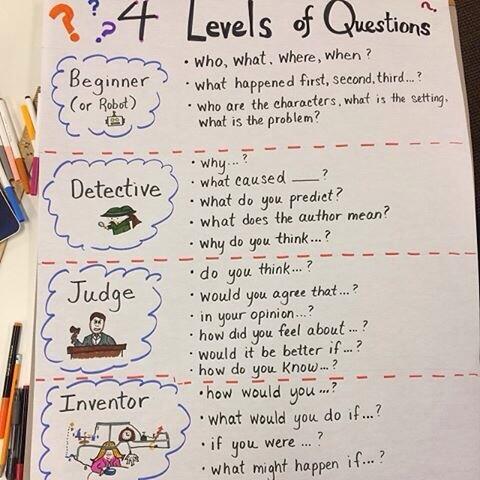 ? ? ? 4 Levels of Questions ?
Beginner
(or Robot)
• who, what, where, when?
• what happened first, second, third...?
• who are the characters, what is the setting,
what is the problem?
Detective
• why...?
• what caused ____?
• what do you predict?
• what does the author mean?
• why do you think...?
Judge
• do you think...?
• would you agree that...?
• in your opinion...?
• how did you feel about...?
• would it be better if...?
• how do you know...?
Inventor
• how would you...?
• what would you do if...?
• if you were ...?
• what might happen if...?